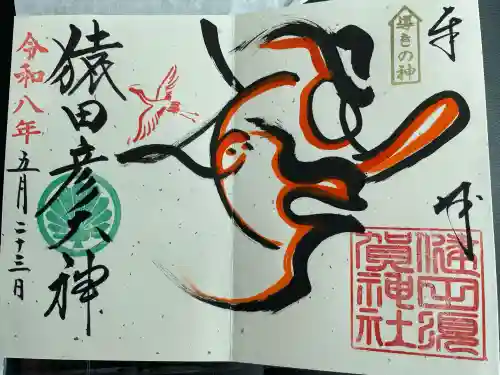 奉拝
導きの神
田須
賀神社
猿田彦大神
令和八年
五月二十三日